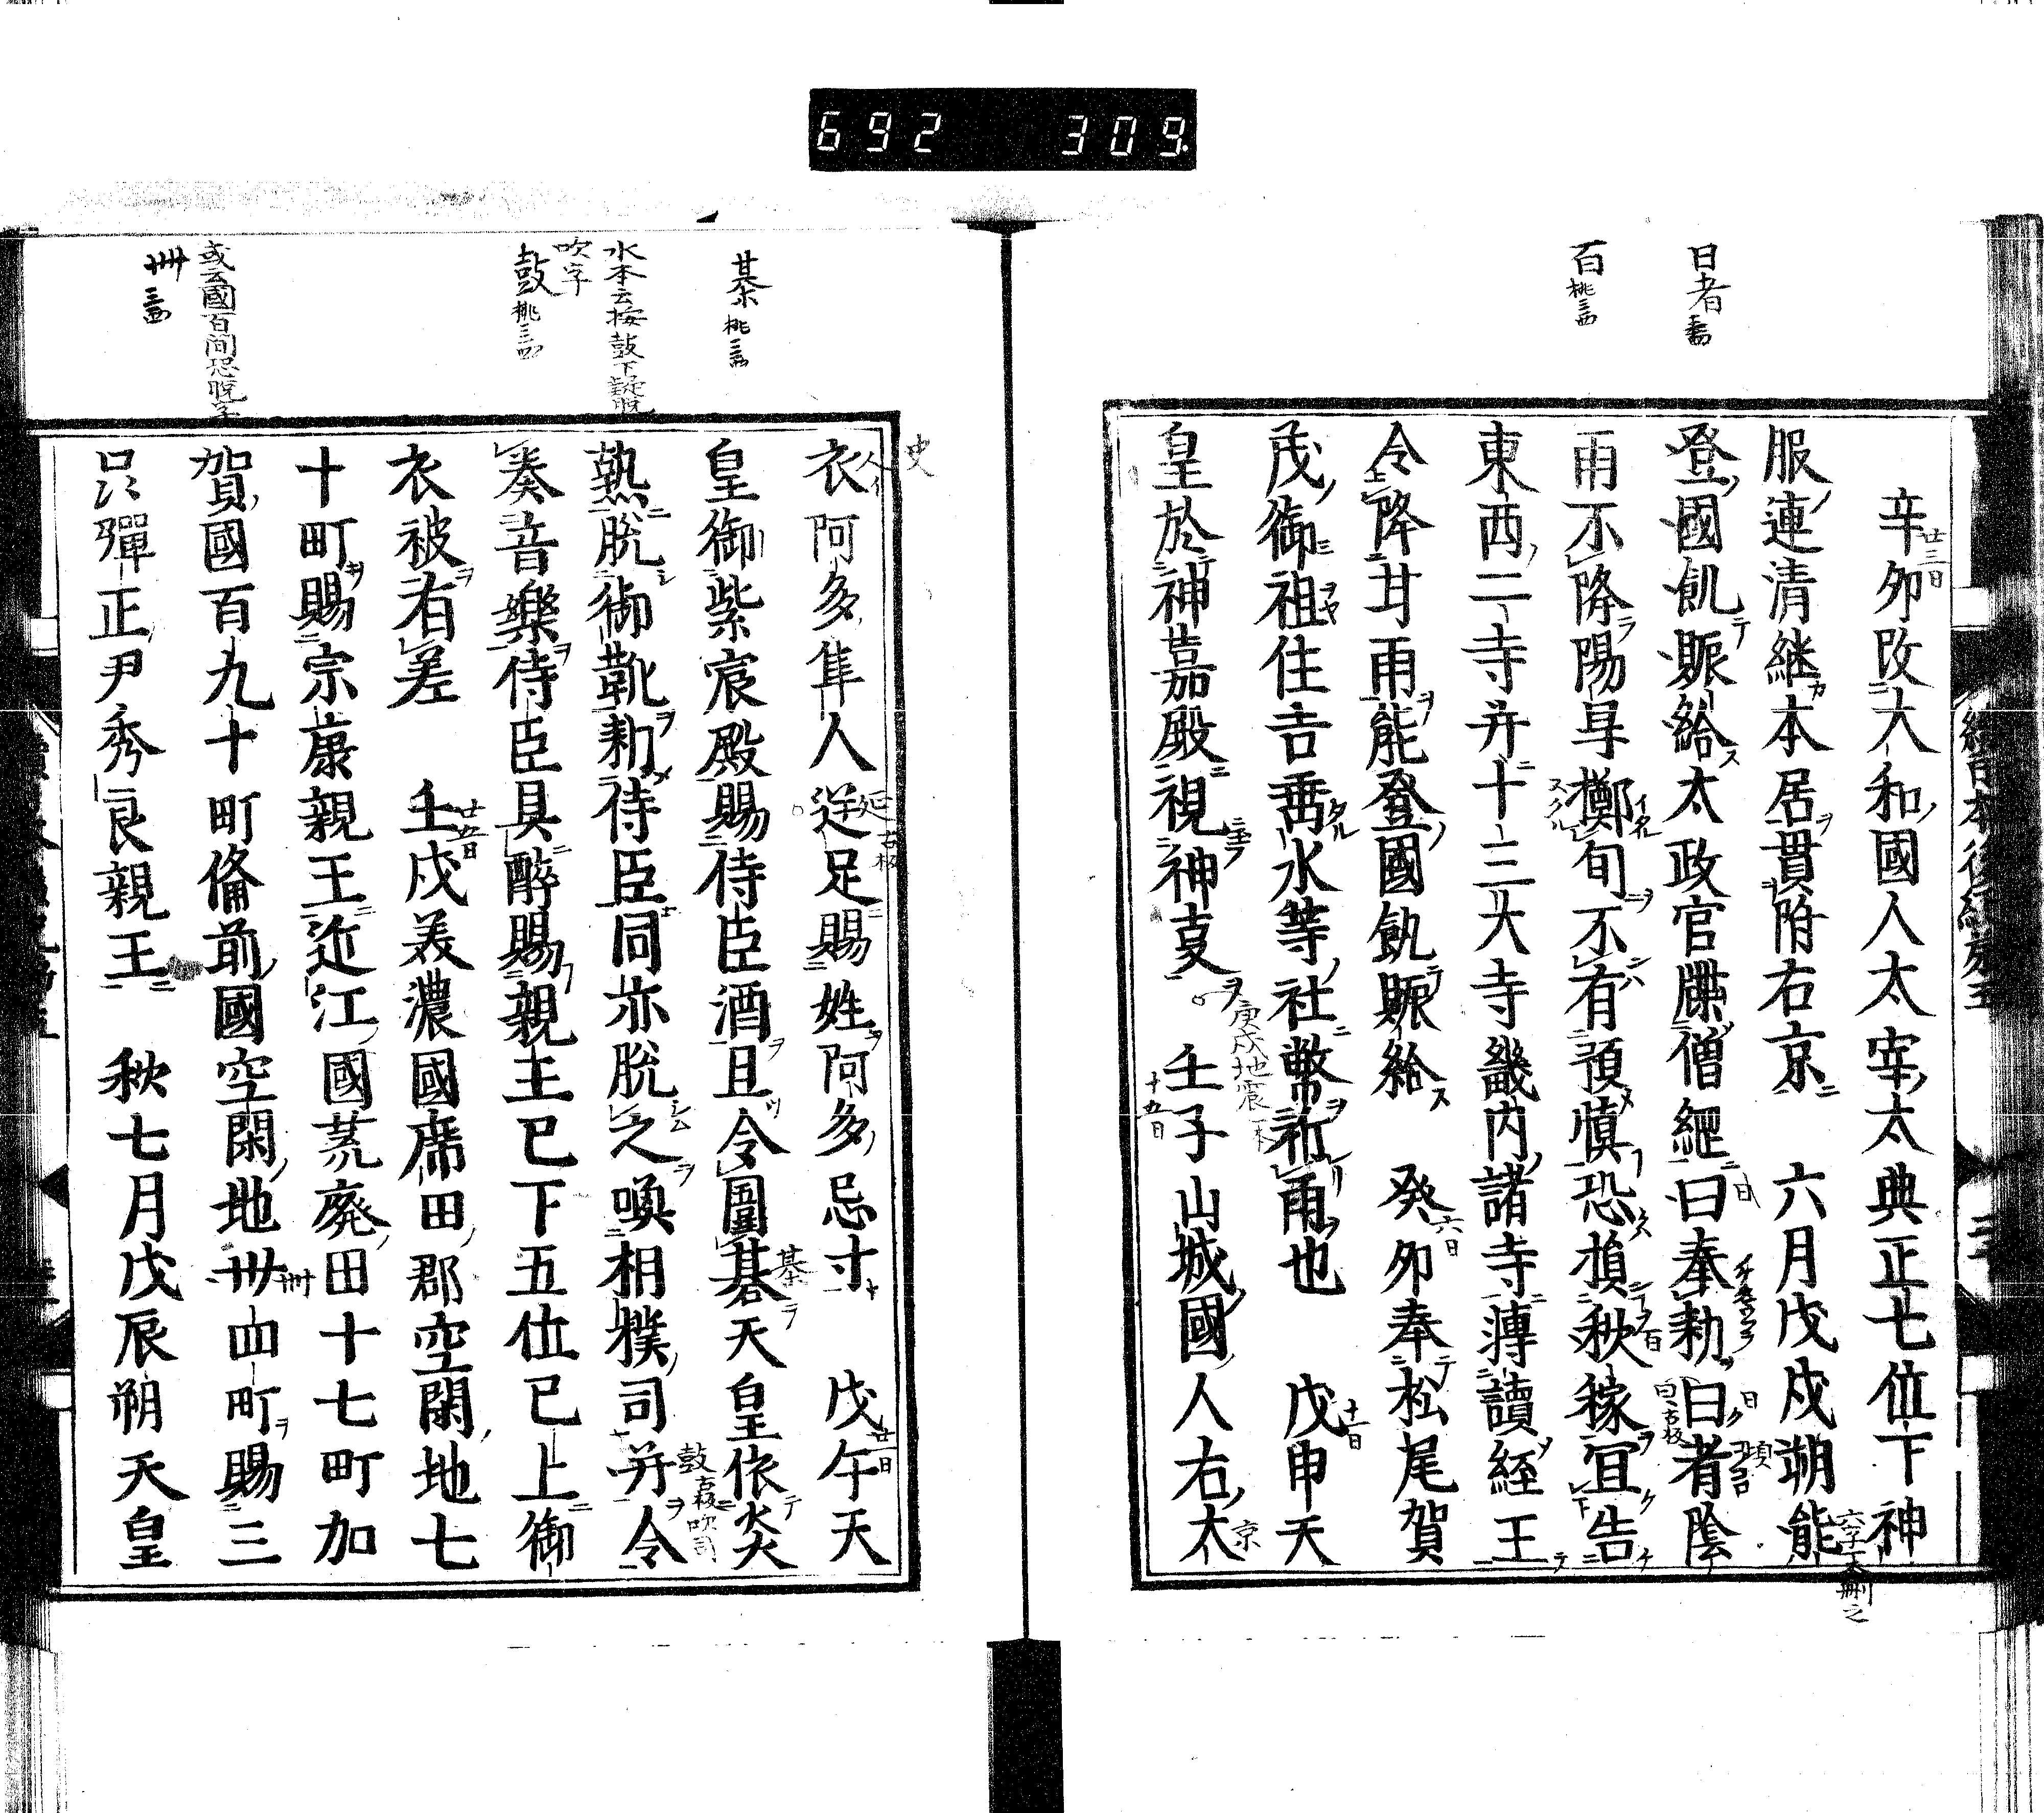 692 309
日者
百
辛卯改大和國人太宰太典正七位下神
服連清継本居貫附右京 六月戊戌朔能
登國飢賑給太政官牒僧綱曰奉勅曰者陰
雨不降陽旱擲旬不有預慎恐損秋稼宜告
東西二寺并十三大寺畿内諸寺轉讀經王
令降甘雨能登國飢賑給 癸卯奉松尾賀
茂御祖住吉垂水等社幣祈雨也 戊申天
皇於神嘉殿視神事 壬子山城國人右太
廿三日
六日
十一日
庚戌地震
十五日
碁
水本云按鼓下疑脱
吹字
鼓
或云國百間恐脱字
卌
衣阿多隼人逆足賜姓阿多忌寸 戊午天
皇御紫宸殿賜侍臣酒且令圍碁天皇依炎
熱脱御靴勅侍臣同亦脱之喚相撲司并令
奏音樂侍臣具醉賜親王已下五位已上御
衣被有差 壬戌美濃國席田郡空閑地七
十町賜宗康親王近江國荒廢田十七町加
賀國百九十町備前國空閑地卌四町賜三
品彈正尹秀良親王 秋七月戊辰朔天皇
史
廿一日
廿五日